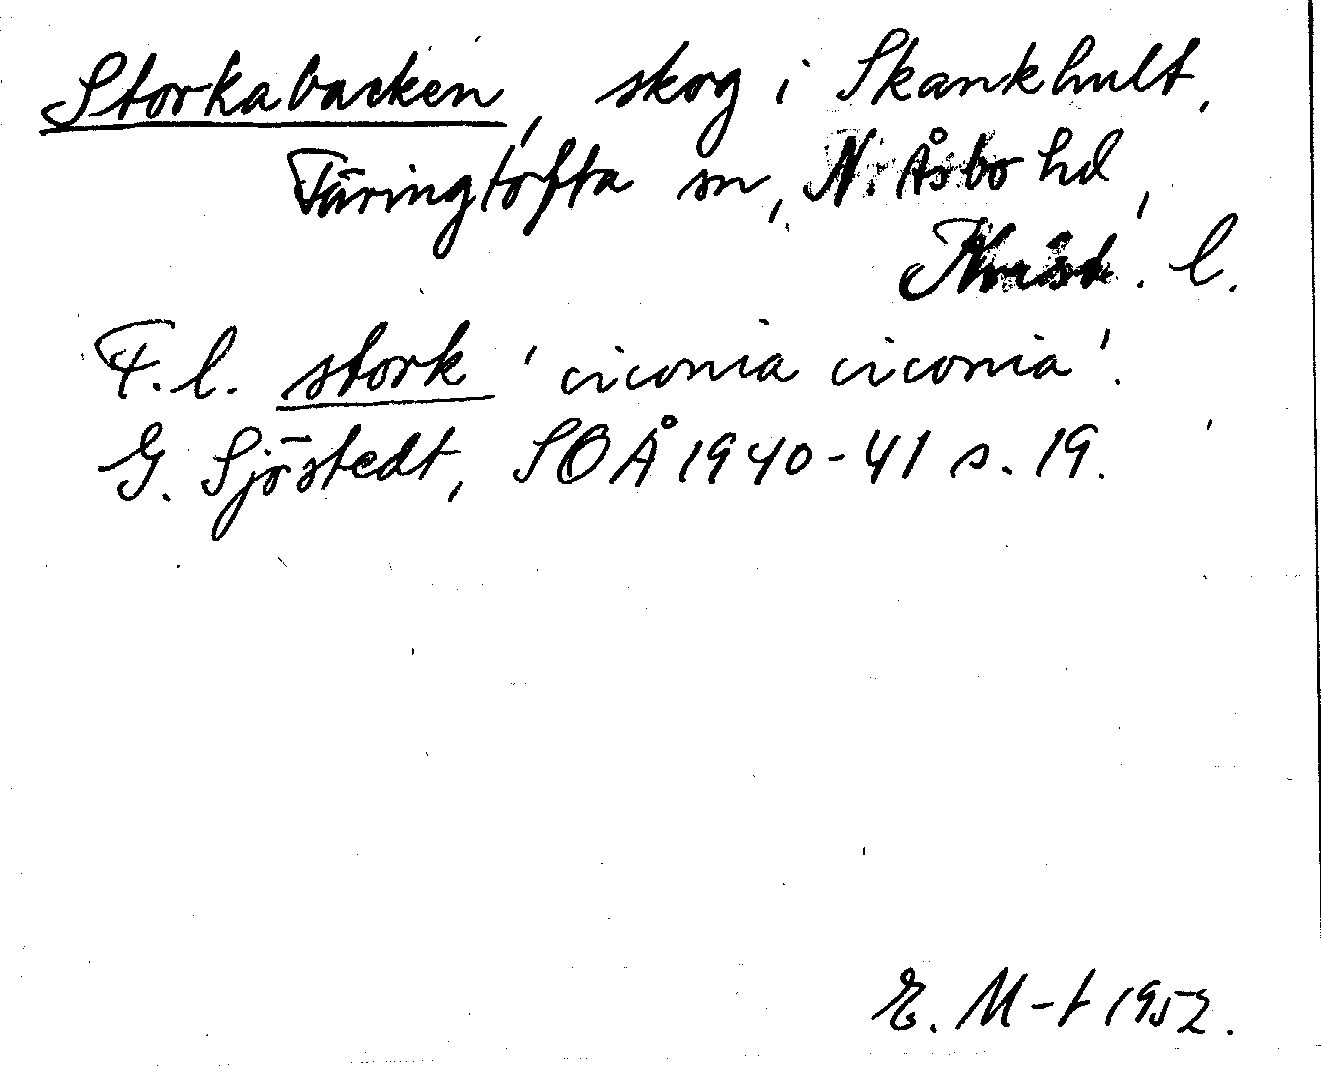 Storkabacken, skog i Skankhult,
Färingtofta sn, N. Åsbo hd,
Krist. l.
F. l. stork 'ciconia ciconia'.
G. Sjöstedt, SOÅ 1940-41 s. 19.
E. M-t 1952.